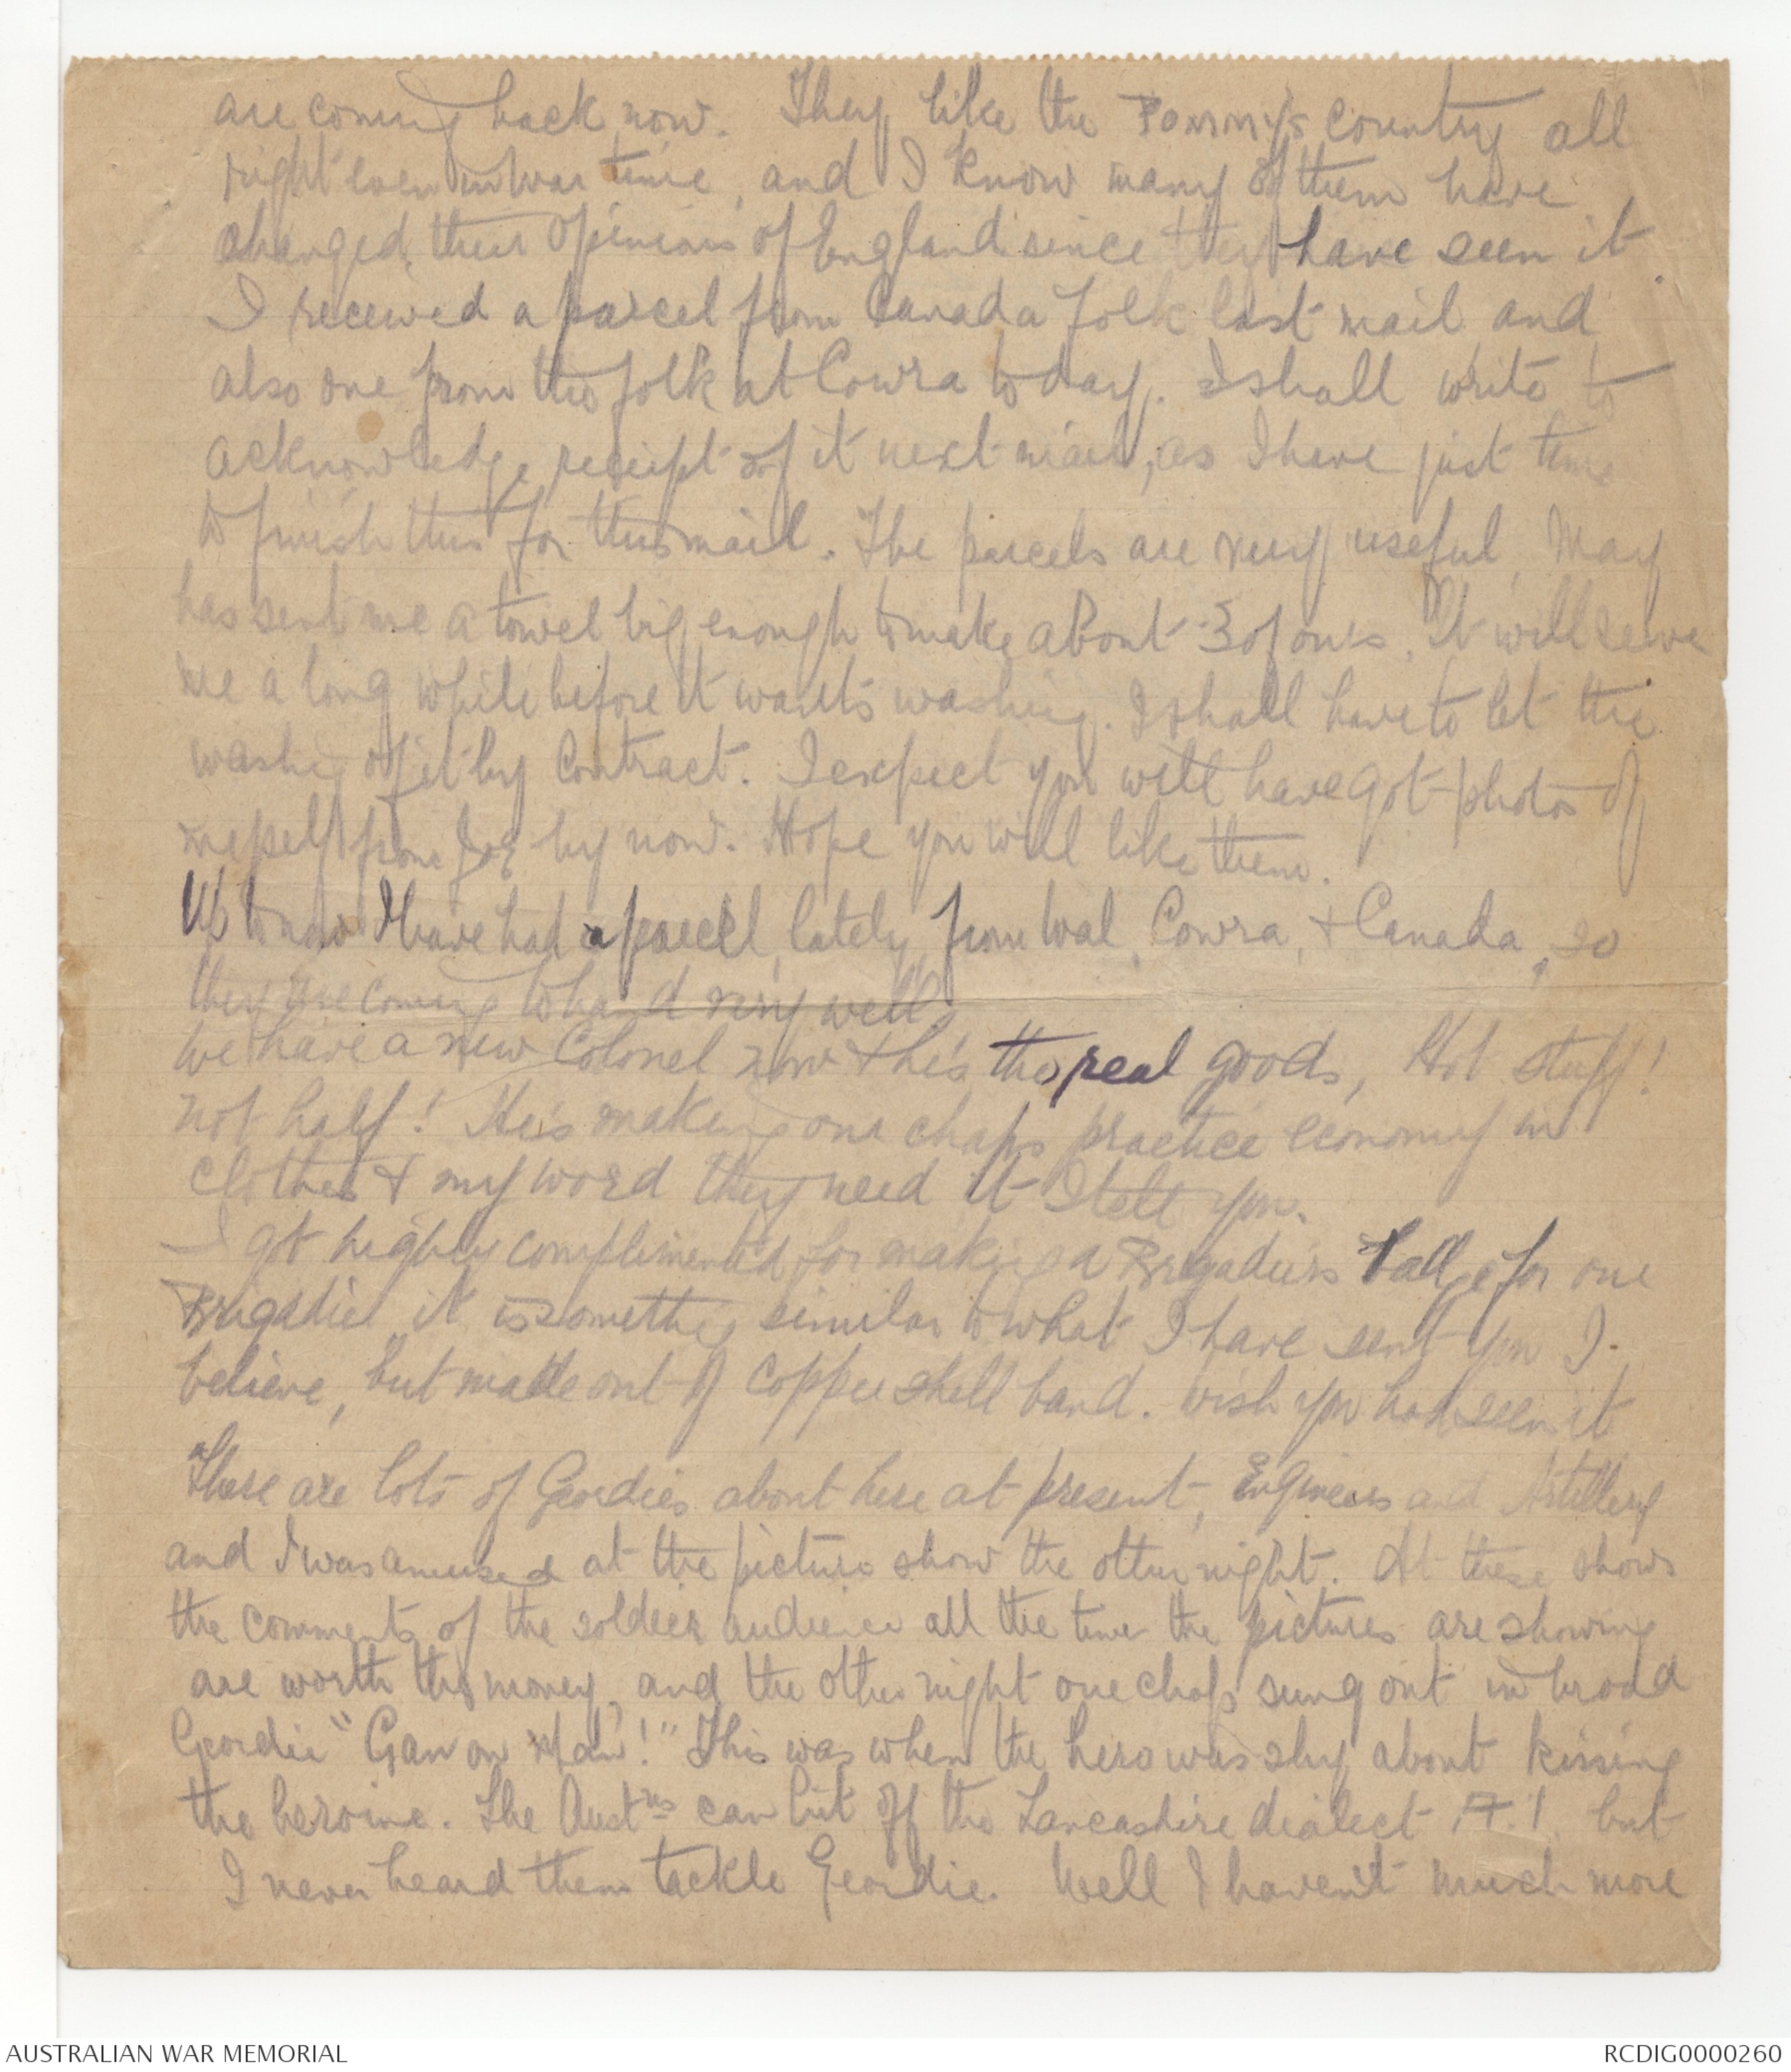 are coming back now. They like the Tommy's country all
right even in war time, and I know many of them have
changed their opinions of England since they have seen it
I received a parcel from Canada folk last mail and
also one from the folk at Cowra today. I shall write to
acknowledge receipt of it next mail, as I have just time
to finish this for this mail. The parcels are very useful, May
has sent me a towel big enough to make about 3 of ours. It will serve
me a long while before it wants washing. I shall have to let the
washing of it by Contract. I expect you will have got photos of
myself from by now. Hope you will like them.
Up to now I have had a parcel, lately, from Wal, Cowra, & Canada, so
they are coming to hand very well.
We have a new Colonel now & he's the real goods, Hot stuff!
not half! He's making our chaps practice economy in
clothes & my word they need it I tell you.
I got highly complimented for making a Brigadiers badge for one
Brigadier, it is something similar to what I have sent you I
believe, but made out of copper shell band. wish you had seen it
There are lots of Geordies about here at present, Engineers and Artillery
and I was amused at the picture show the other night. At these shows
the comments of the soldier audience all the time the pictures are showing
are worth the money, and the other night one chap sung out in broad
Geordie "Gan on Man!" This was when the hero was shy about kissing
the heroine. The Austns can hit off the Lancashire dialect A.1. but
I never heard them tackle Geordie. Well I haven't much more
AUSTRALIAN WAR MEMORIAL
RCDIG0000260